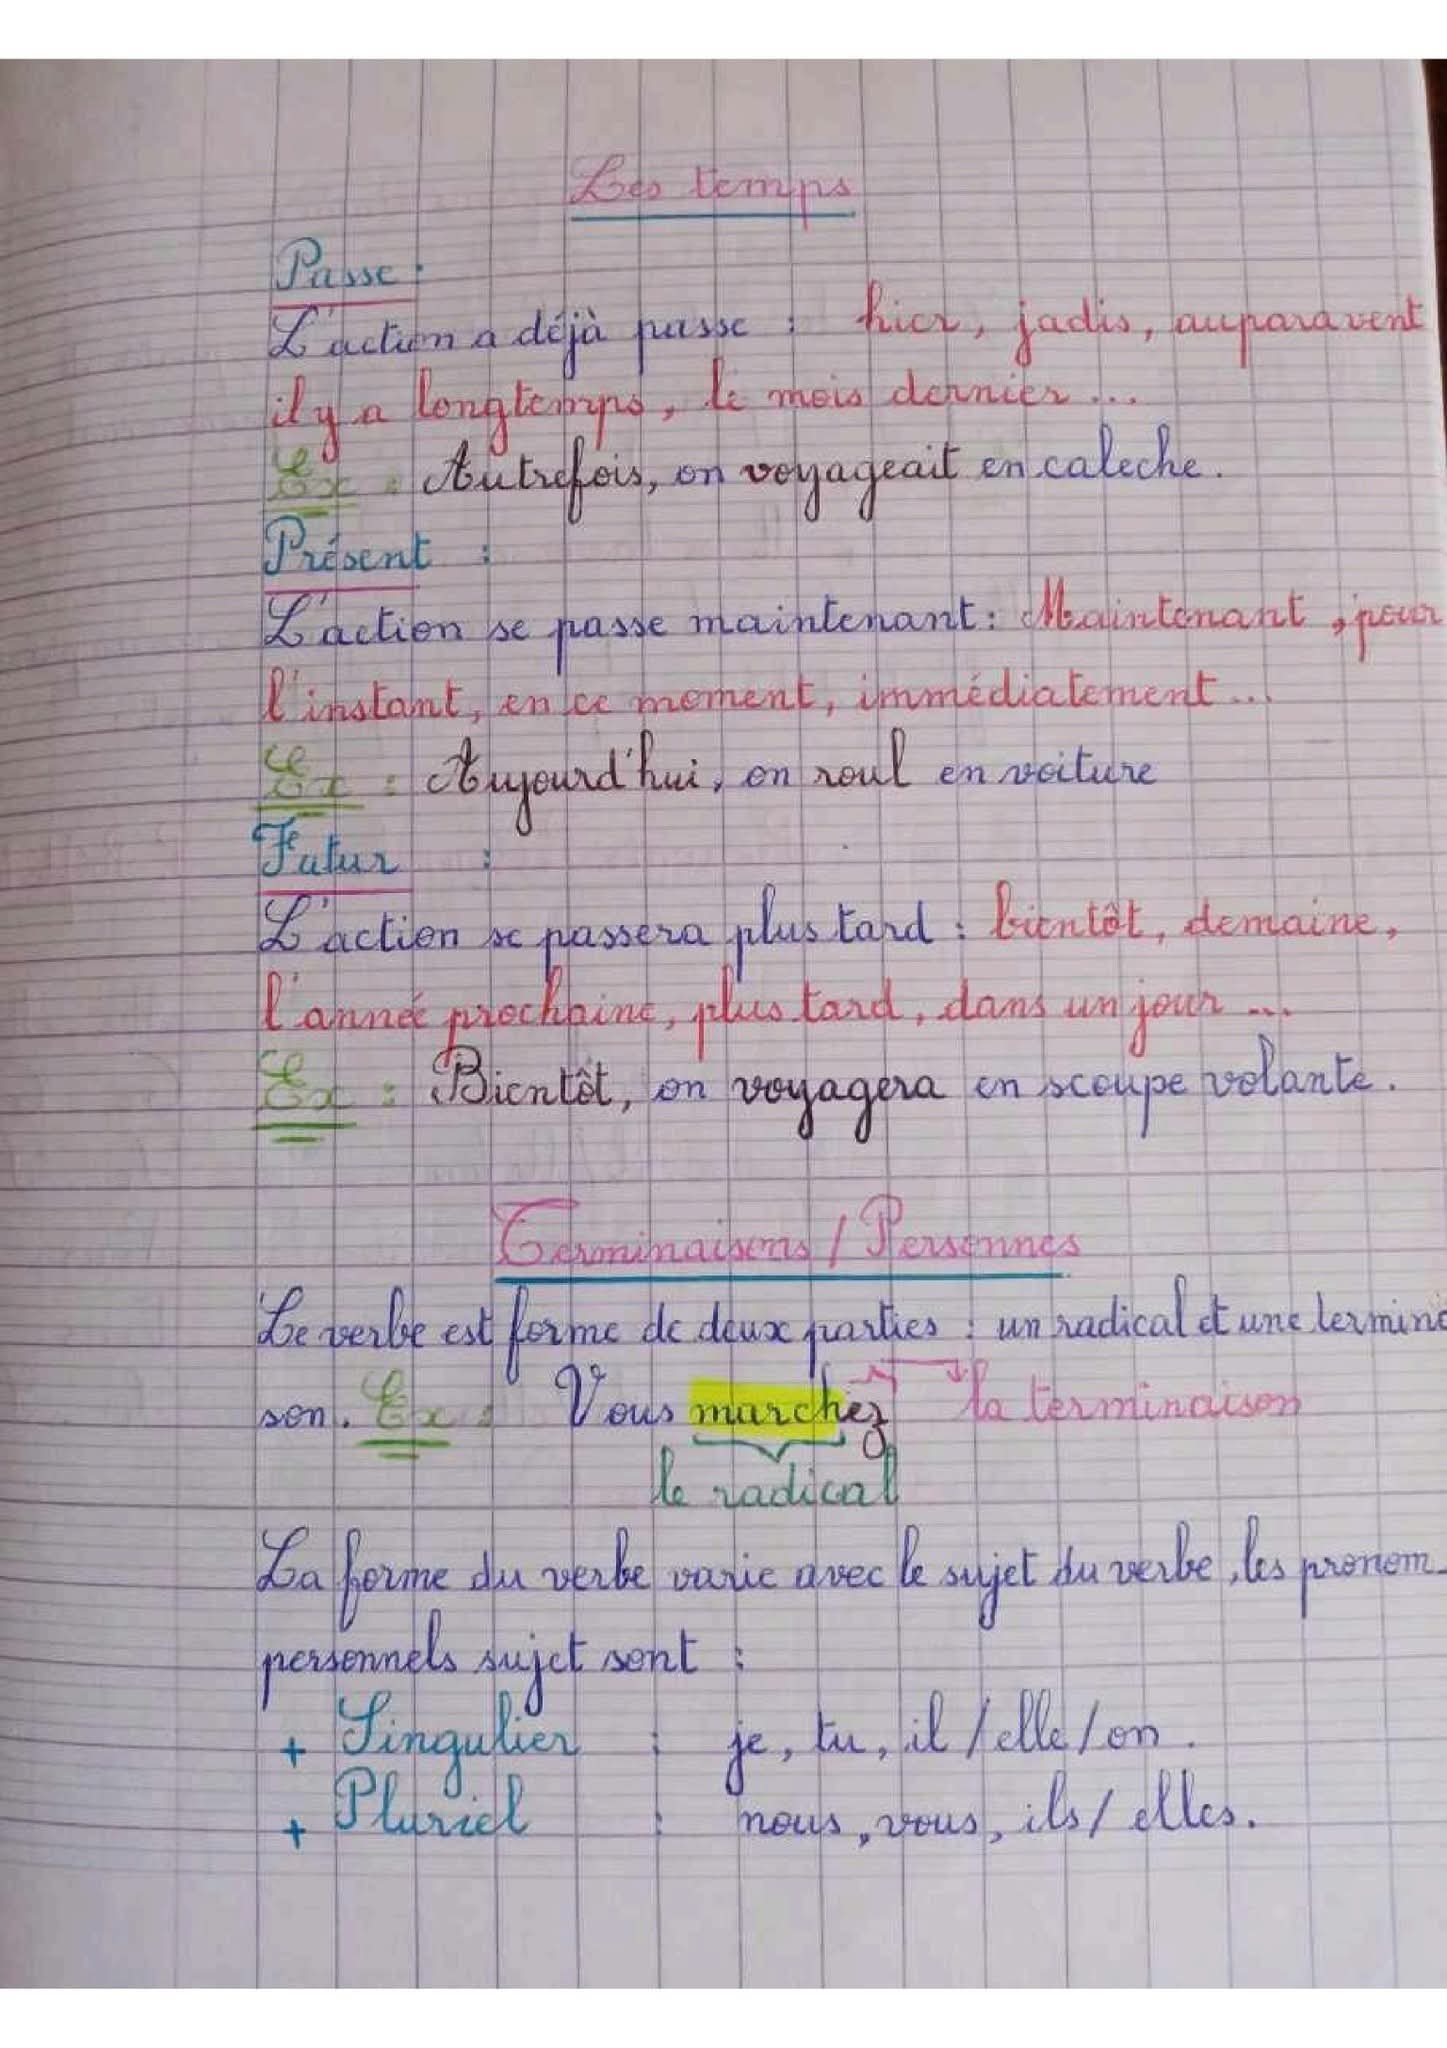 Les temps
Passe :
L'action a déjà passe : hier, jadis, auparavent
il y a longtemps, le mois dernier ...
Ex : Autrefois, on voyageait en caleche.
Présent :
L'action se passe maintenant : Maintenant, pour
l'instant, en ce moment, immédiatement ...
Ex : Aujourd'hui, on roul en voiture
Futur :
L'action se passera plus tard : bientôt, demaine,
l'année prochaine, plus tard, dans un jour ...
Ex : Bientôt, on voyagera en scoupe volante.
Terminaisons / Personnes
Le verbe est forme de deux parties : un radical et une termine
son. Ex : Vous marchez la terminaison
le radical
La forme du verbe varie avec le sujet du verbe, les pronom
personnels sujet sont :
+ Singulier : je, tu, il / elle / on.
+ Pluriel : nous, vous, ils / elles.